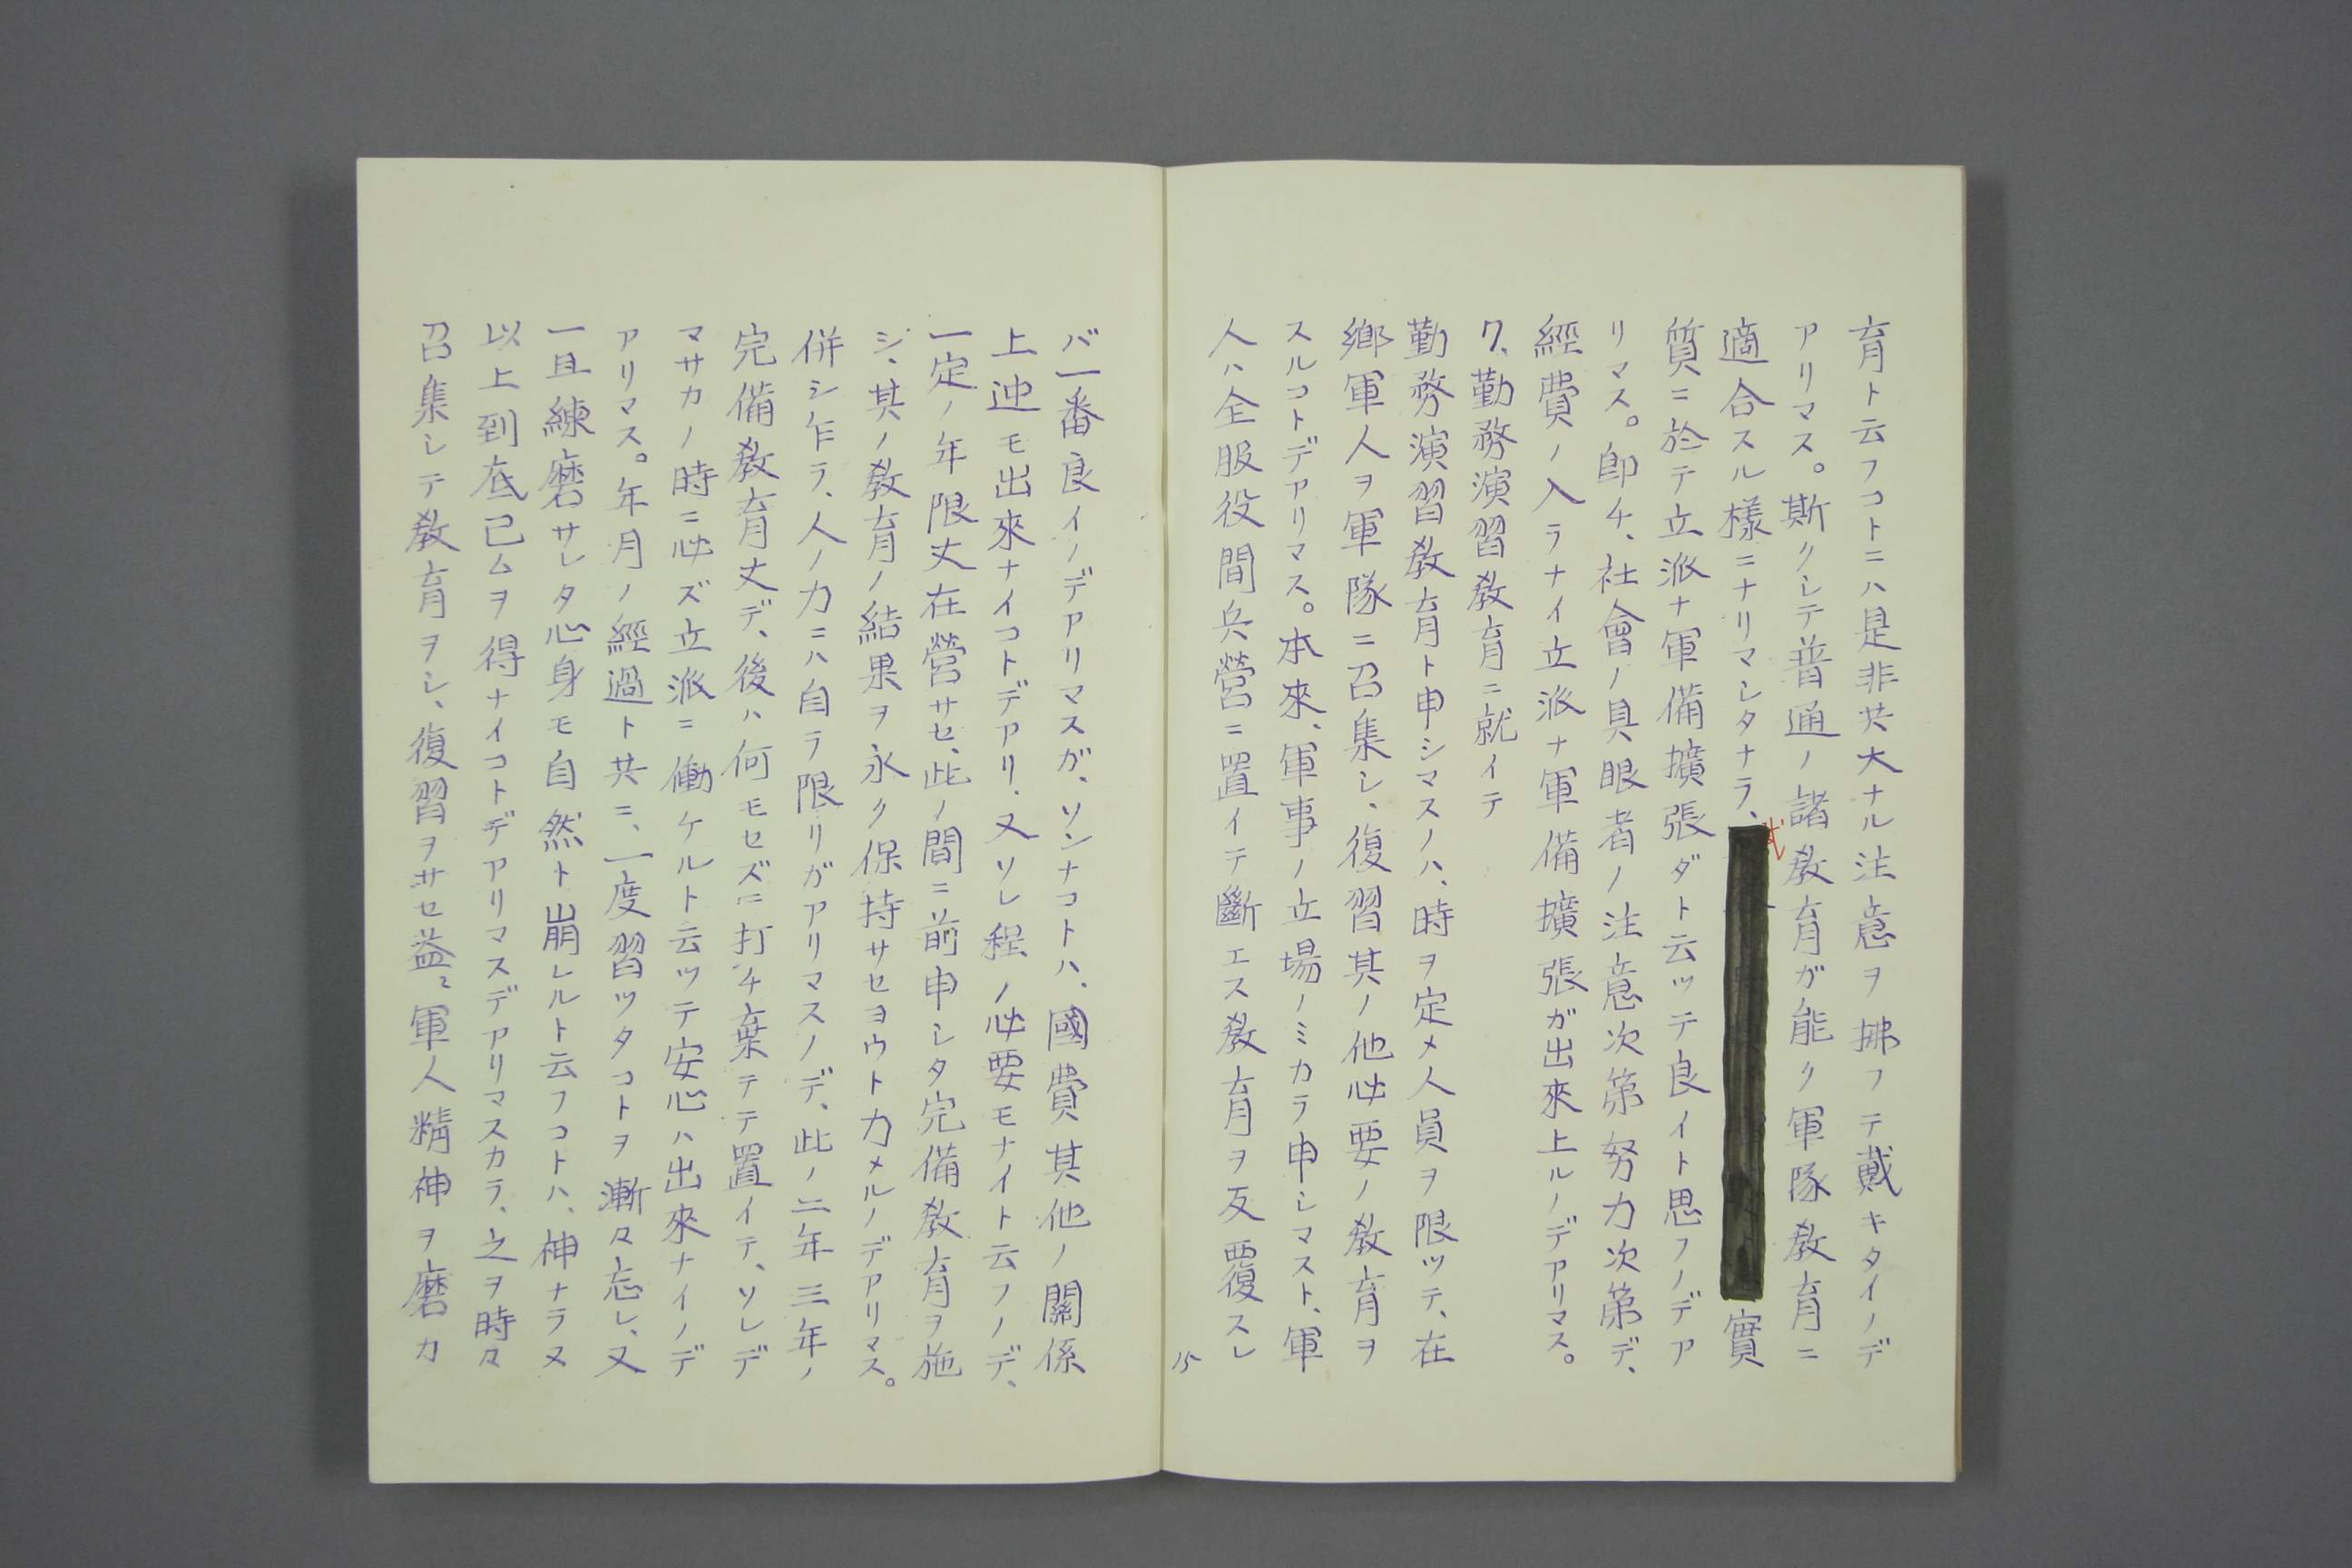 育ト云フコトニハ是非共大ナル注意ヲ拂フテ戴キタイノデ
アリマス。斯クシテ普通ノ諸教育ガ能ク軍隊教育ニ
適合スル樣ニナリマシタナラ、
實
質ニ於テ立派ナ軍備擴張ダト云ツテ良イト思フノデア
リマス。卽チ、社會ノ具眼者ノ注意次第努力次第デ、
經費ノ入ラナイ立派ナ軍備擴張ガ出來上ルノデアリマス。
7、勤務演習教育ニ就イテ
勤務演習教育ト申シマスノハ、時ヲ定メ人員ヲ限ツテ、在
鄕軍人ヲ軍隊ニ召集シ、復習其ノ他必要ノ教育ヲ
スルコトデアリマス。本來、軍事ノ立場ノミカラ申シマスト、軍
人ハ全服役間兵營ニ置イテ斷エス教育ヲ反覆スレ
15
バ一番良イノデアリマスガ、ソンナコトハ、國費其他ノ關係
上迚モ出來ナイコトデアリ、又ソレ程ノ必要モナイト云フノデ、
一定ノ年限丈在營サセ、此ノ間ニ前申シタ完備教育ヲ施
シ、其ノ教育ノ結果ヲ永ク保持サセヨウト力メルノデアリマス。
併シ乍ラ、人ノ力ニハ自ラ限リガアリマスノデ、此ノ二年三年ノ
完備教育丈デ、後ハ何モセズニ打チ棄テテ置イテ、ソレデ
マサカノ時ニ必ズ立派ニ働ケルト云ツテ安心ハ出來ナイノデ
アリマス。年月ノ經過ト共ニ、一度習ツタコトヲ漸々忘レ、又
一旦練磨サレタ心身モ自然ト崩レルト云フコトハ、神ナラヌ
以上到底已ムヲ得ナイコトデアリマスデアリマスカラ、之ヲ時々
召集シテ教育ヲシ、復習ヲサセ益々軍人精神ヲ磨カ